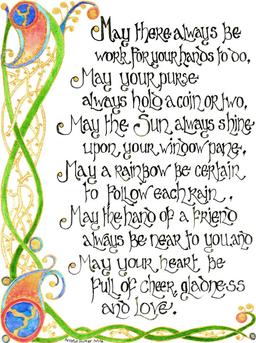 May there always be
work for your hands to do,
May your purse
always hold a coin or two,
May the Sun always shine
upon your window pane,
May a rainbow be certain
to follow each rain,
May the hand of a friend
always be near to you and
May your heart be
full of cheer, gladness
and love.